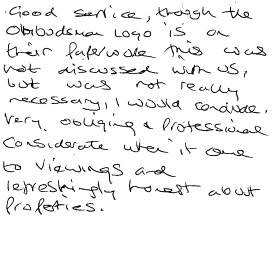 Good service, though the
Ombudsman Logo is on
their paperwork this was
not discussed with us,
but was not really
necessary, I would conclude.
Very obliging & professional
Considerate when it came
to viewings and
refreshingly honest about
properties.